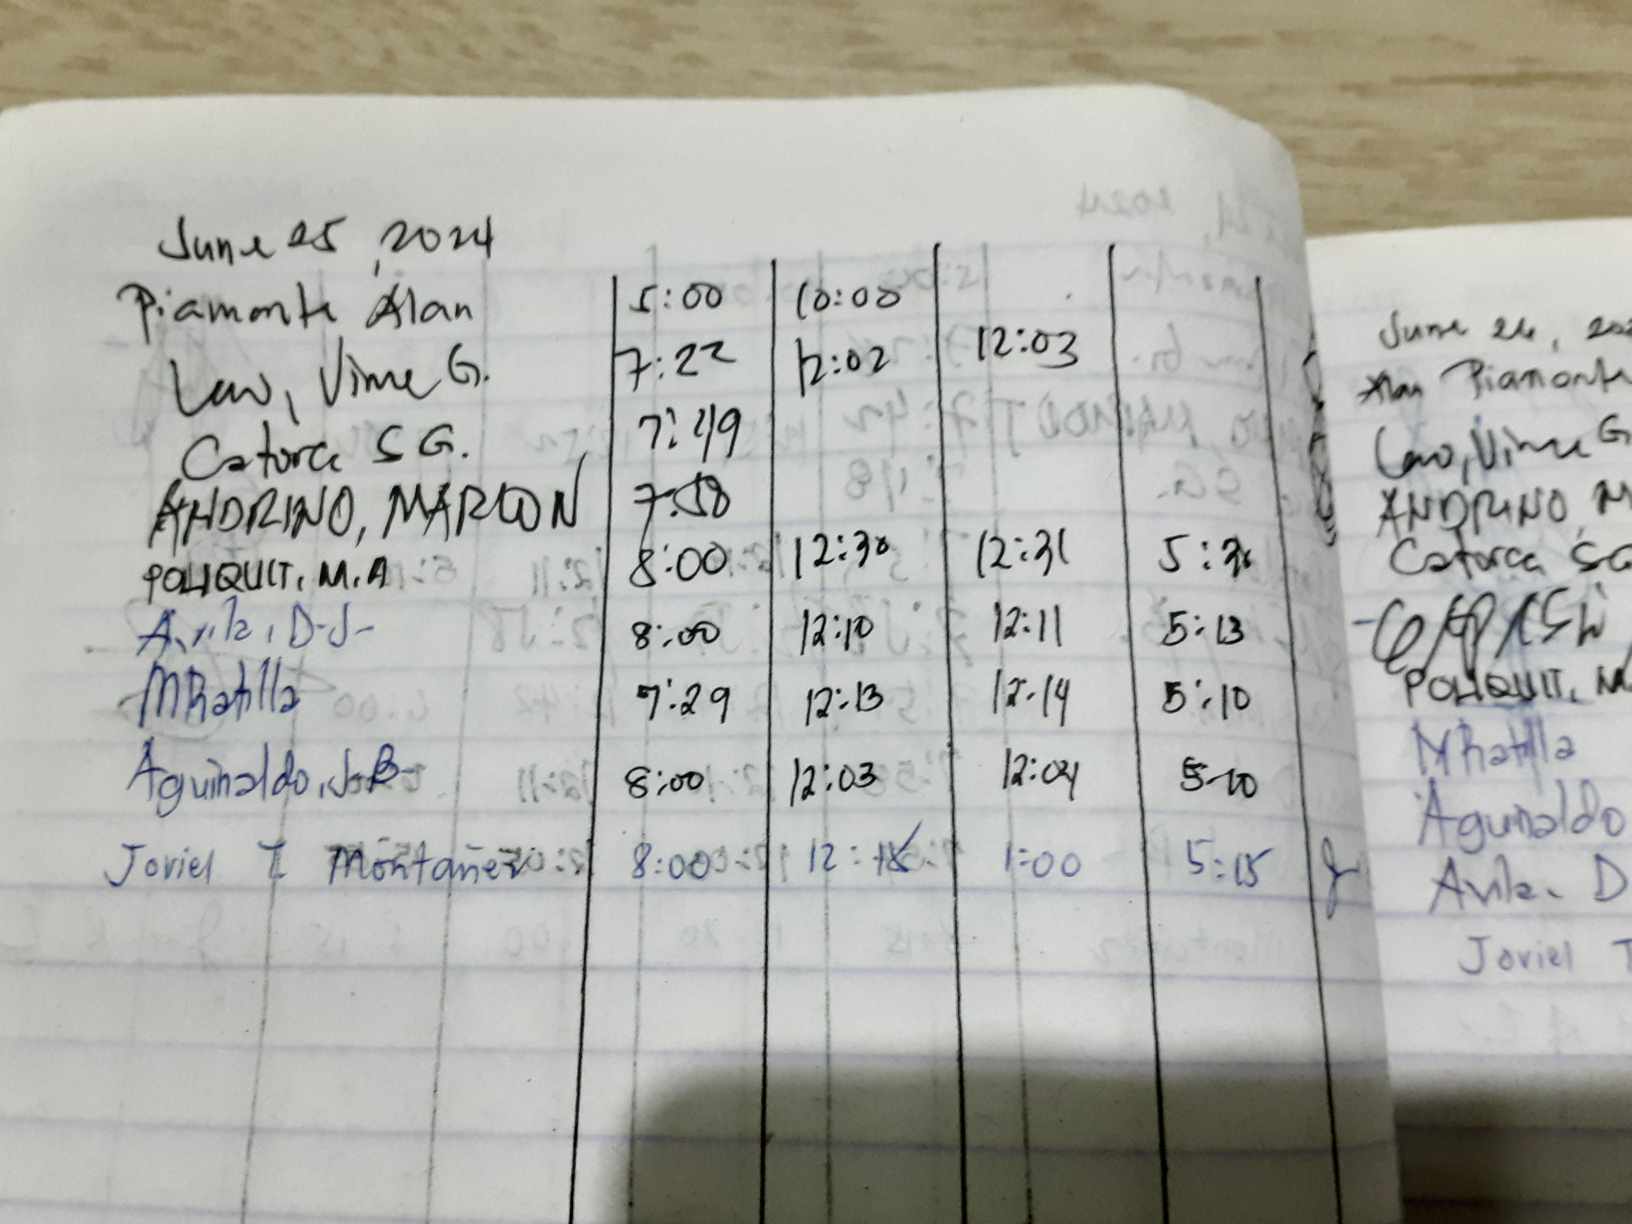 June 25, 2024
Piamonte Alan 5:00 10:00
Law, Vime G. 7:22 12:02 12:03
Catorce S G. 7:49
ANDRINO, MARLON 7:58
POLIQUIT, M.A 8:00 12:30 12:31 5:30
Avila, D-J- 8:00 12:10 12:11 5:13
MRatilla 7:29 12:13 12:14 5:10
Aguinaldo, J.B- 8:00 12:03 12:04 5:10
Joviel T Montañez 8:00 12: 1:00 5:15
June 26, 202
Alan Piamonte
Law, Vime G
ANDRINO, M
Catorce SG
POLIQUIT, M.
MRatilla
Aguinaldo
Avila- D
Joviel T